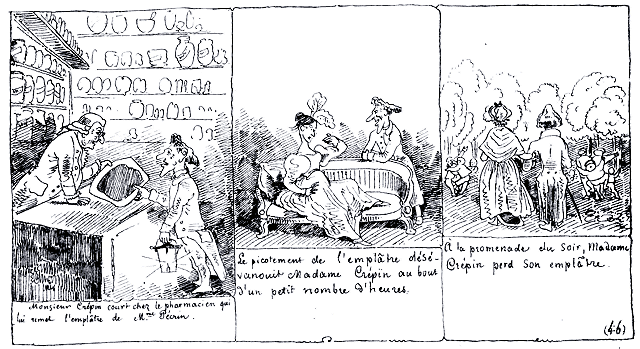 Monsieur Crépin court chez le pharmacien qui
lui remet l'emplâtre de M.me Pécrin.
Le picotement de l'emplâtre désé-
vanouit Madame Crépin au bout
d'un petit nombre d'heures.
À la promenade du soir, Madame
Crépin perd son emplâtre.
(46)